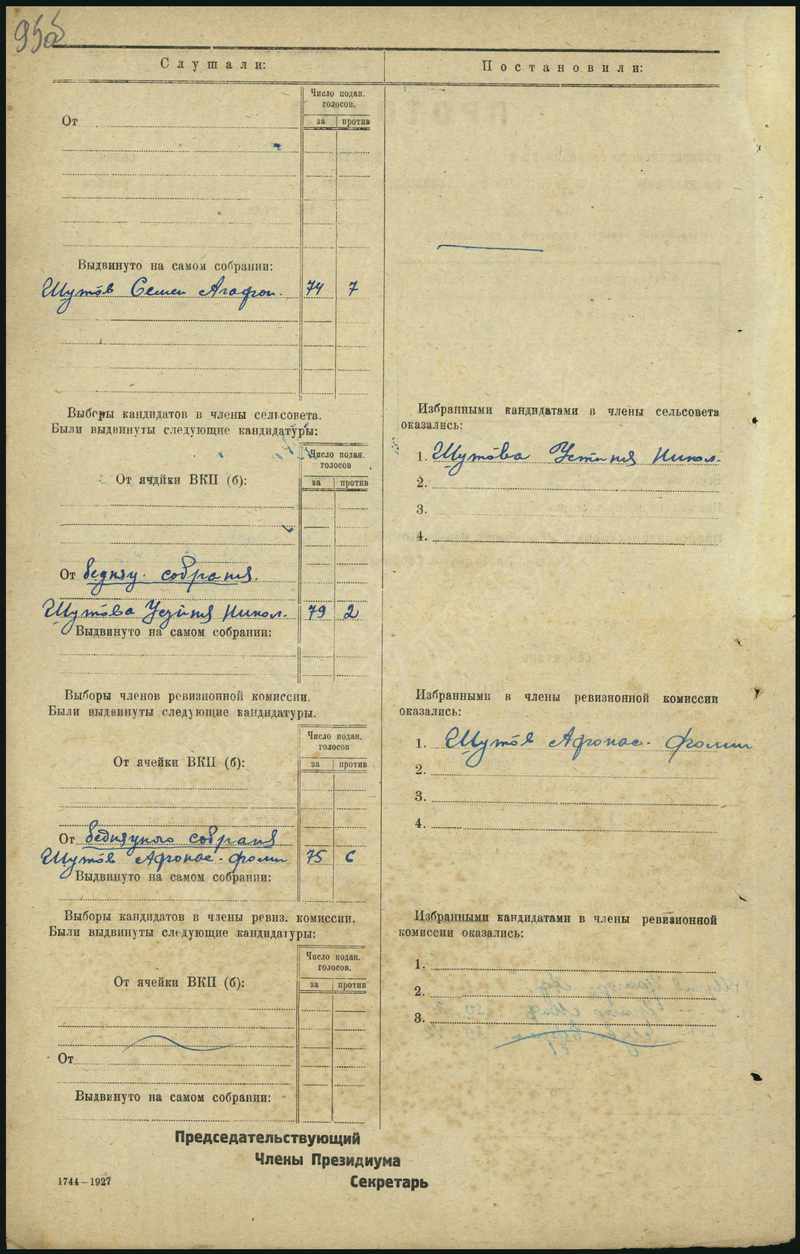 95об
Слушали:
Постановили:
Число подан. голосов.
за против
От
Выдвинуто на самом собрании:
Шутов Семен Агафон. 74 7
Выборы кандидатов в члены сельсовета.
Были выдвинуты следующие кандидатуры:
Число подан.
голосов
за против
От ячейки ВКП (б):
От бедняц. собрания.
Шутова Устиния Никол. 79 2
Выдвинуто на самом собрании:
Избранными кандидатами в члены сельсовета
оказались:
1. Шутова Устиния Никол.
2.
3.
4.
Выборы членов ревизионной комиссии.
Были выдвинуты следующие кандидатуры.
Число подан.
голосов
за против
От ячейки ВКП (б):
От бедняцкого собрания
Шутов Афонас. Фомич 75 6
Выдвинуто на самом собрании:
Избранными в члены ревизионной комиссии
оказались:
1. Шутов Афонас. Фомич
2.
3.
4.
Выборы кандидатов в члены ревиз. комиссии.
Были выдвинуты следующие кандидатуры:
Число подан.
голосов.
за против
От ячейки ВКП (б):
От
Выдвинуто на самом собрании:
Избранными кандидатами в члены ревизионной
комиссии оказались:
1.
2.
3.
Председательствующий
Члены Президиума
Секретарь
1744—1927